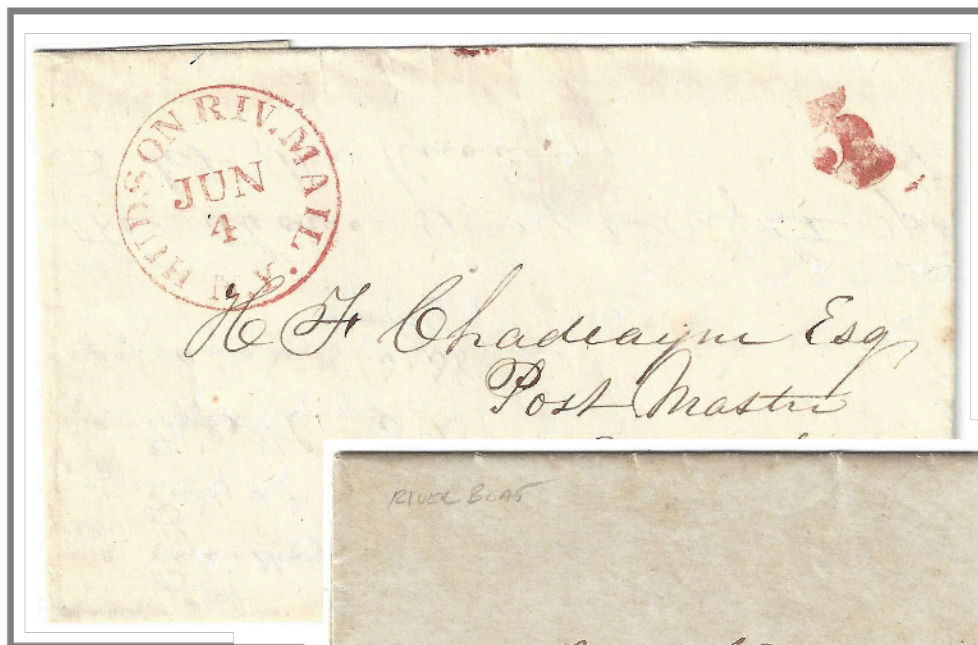 HUDSON RIV. MAIL. N.Y.
JUN
4
5
H F Chadeayne Esq
Post Master
RIVER BOAT